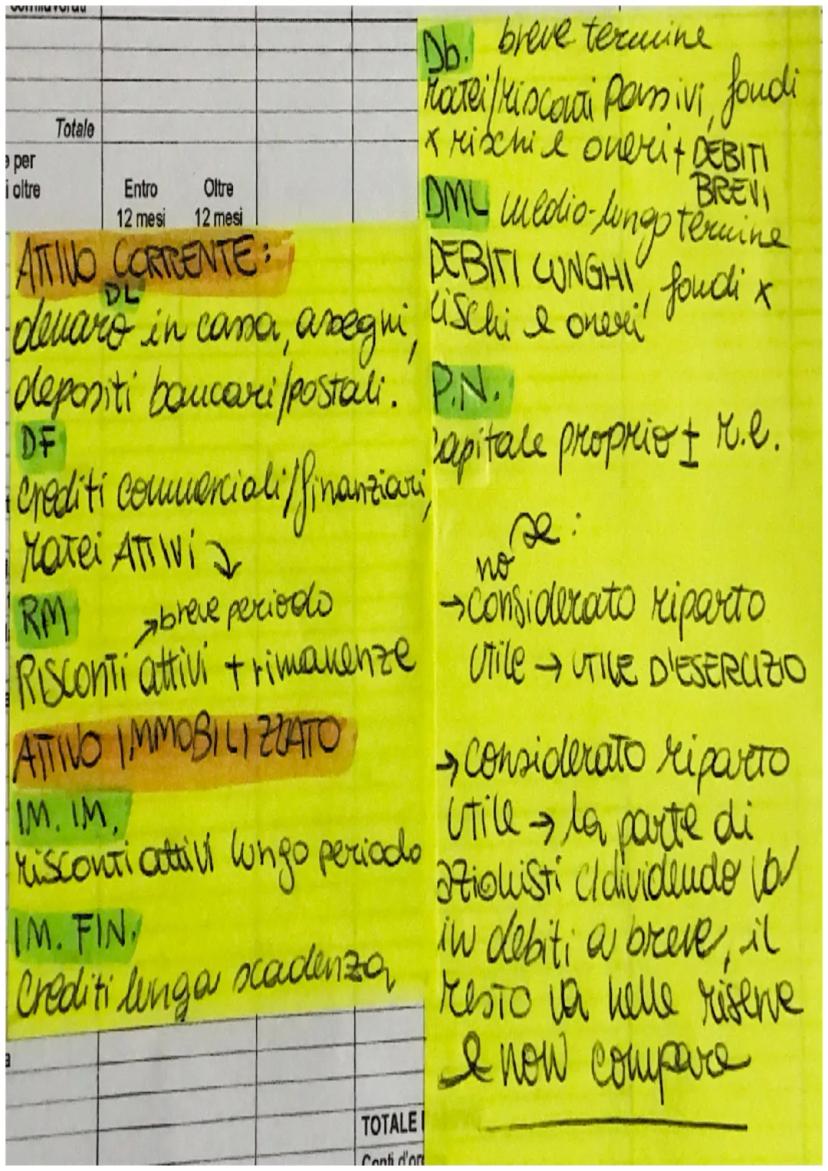 Totale
per
i oltre
Entro
12 mesi
Oltre
12 mesi
ATTIVO CORRENTE:
DL
denaro in cassa, assegni,
depositi bancari/postali.
DF
crediti commerciali/finanziari,
ratei ATTIVI
RM
breve periodo
RISCONTI attivi + rimanenze
ATTIVO IMMOBILIZZATO
IM. IM.
risconti attivi lungo periodo
IM. FIN.
Crediti lunga scadenza
TOTALE
Conti d'or
Db. breve termine
ratei/risconti passivi, fondi
x rischi e oneri + DEBITI
BREVI
DML medio-lungo termine
DEBITI LUNGHI, fondi x
rischi e oneri
P.N.
capitale proprio ± r.e.
se:
no
→ considerato riparto
utile → UTILE D'ESERCIZIO
→ considerato riparto
utile → la parte di
azionisti c/dividendo va
in debiti a breve, il
resto va nelle riserve
e non compare